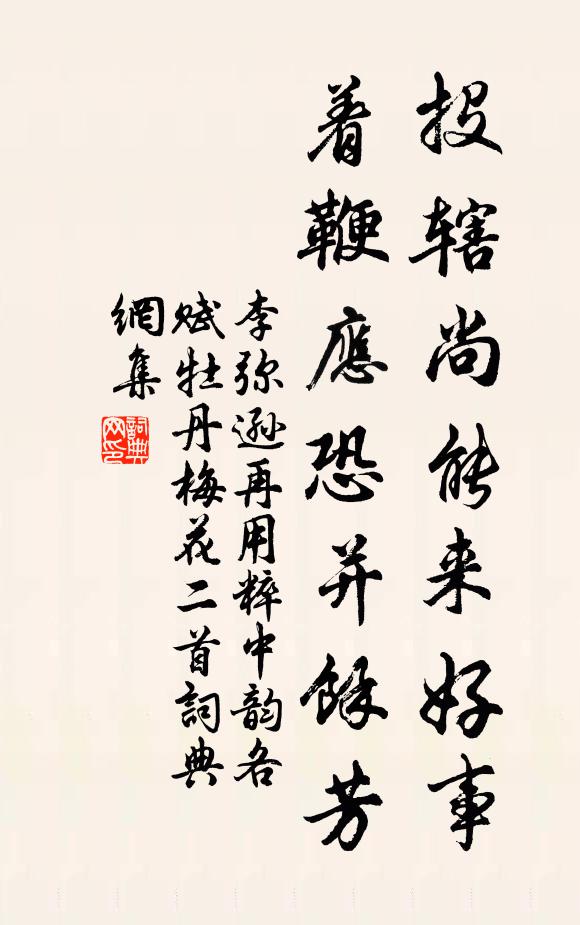 投辖尚能来好事
着鞭應恐并餘芳
李弥遜再用粹中韵各
赋牡丹梅花二首詞典
網集
詞典
网印